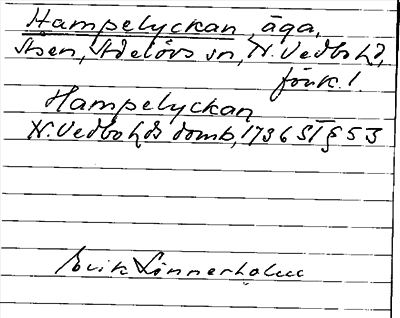 Hampelyckan äga,
Åsen, Adelövs sn, N. Vedbo hd,
Jönk. l
Hampelyckan
N. Vedbo hds domb, 1736 ST § 53
Erik Linnerholm